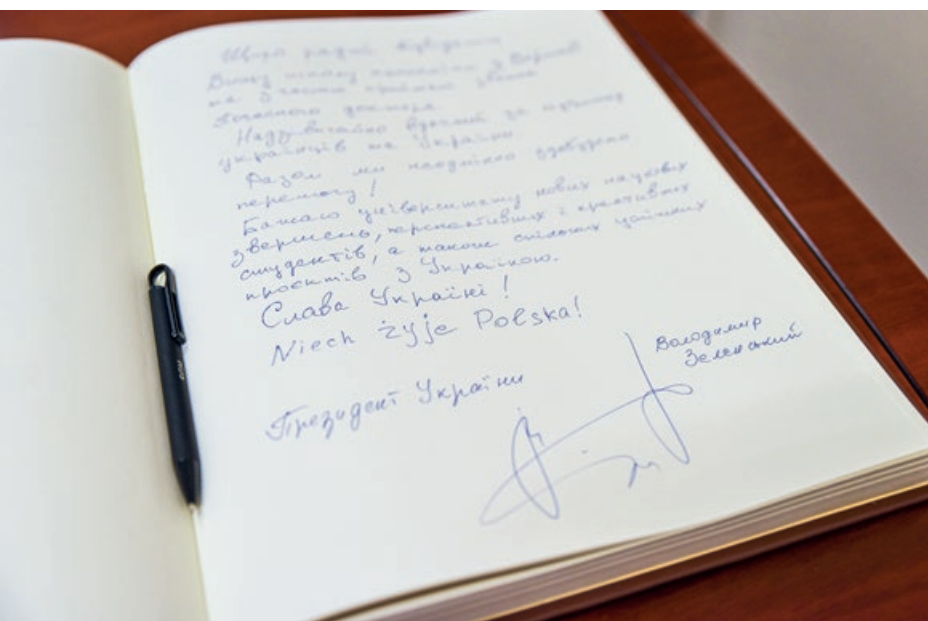 Щиро радий відвідати
на
Почесного доктора
Надзвичайно вдячний за підтримку
українців та України
Разом ми неодмінно здобудемо
перемогу!
Бажаю університету нових наукових
звершень, і креативних
студентів, а також спільних успішних
проєктів з Україною.
Слава Україні!
Niech żyje Polska!
Президент України
Володимир
Зеленський